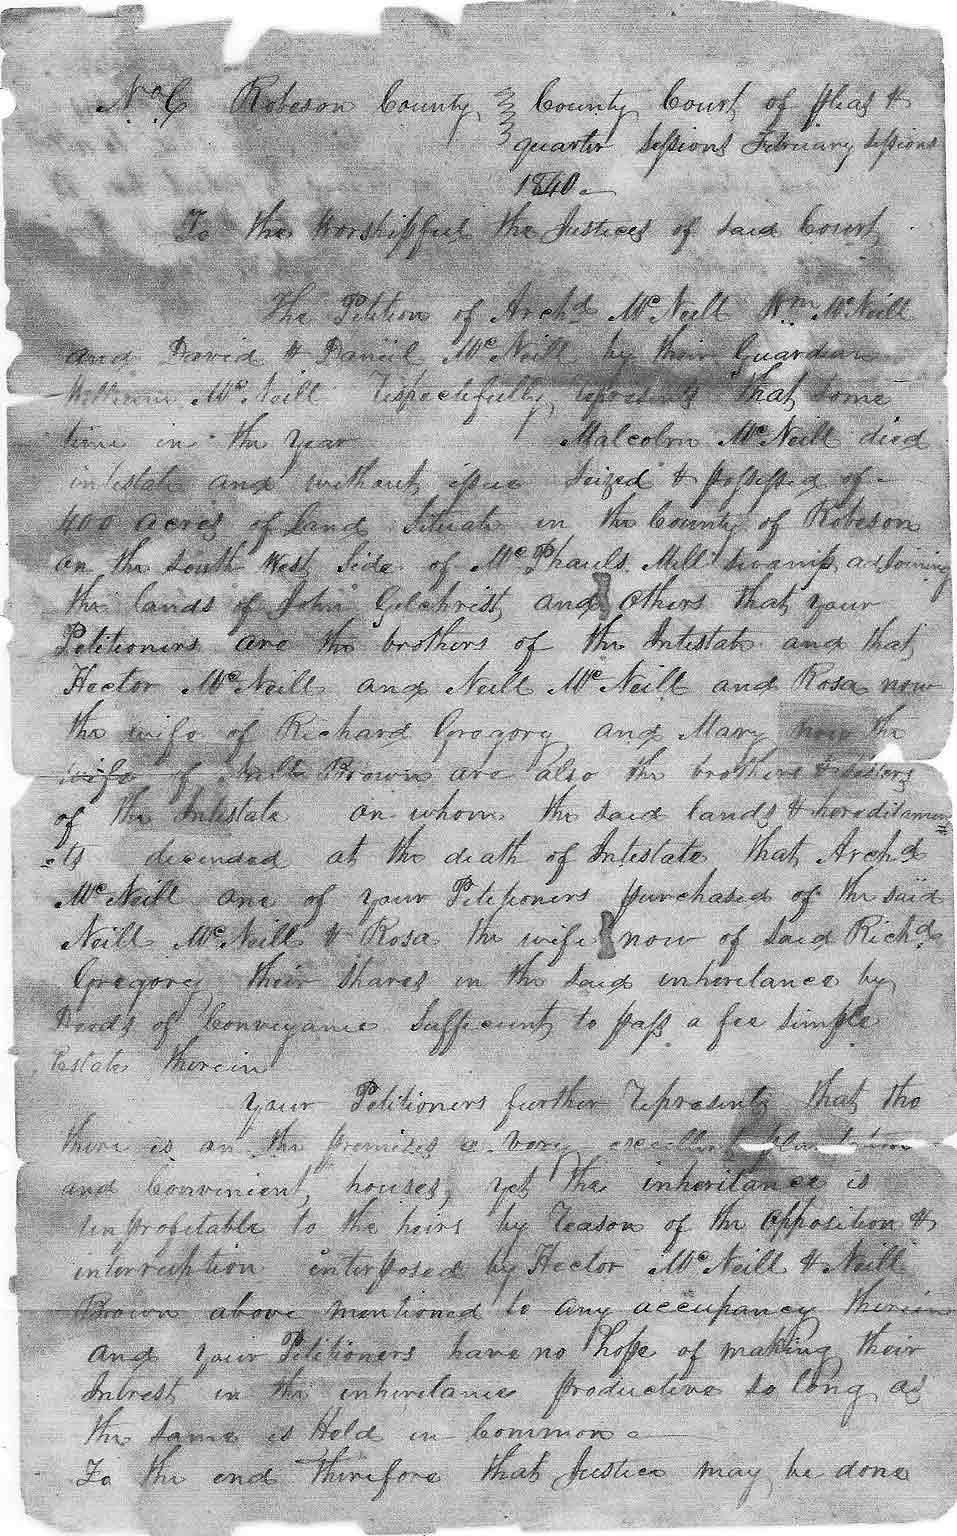 No. C Robeson County County Court of pleas &
quarter Sessions February Sessions
1840
To the Worshipfull the Justices of said Court
The Petition of Archd McNeill Wm McNeill
and David & Daniel McNeill by their Guardian
William McNeill Respectefully represents that some
time in the year Malcolm McNeill died
intestate and without issue Seized & possessed of
400 acres of Land Situate in the County of Robeson
on the South West Side of McPhauls Mill Swamp adjoining
the lands of John Gilchrist and others that your
Petitioners are the brothers of the Intestate and that
Hector McNeill and Neill McNeill and Rosa now
the wife of Richard Gregory and Mary now the
wife of Neill Brown are also the brothers & Sisters
of the Intestate on whom the said lands & hereditamen=
=ts decended at the death of Intestate that Archd
McNeill one of your Petitioners purchased of the said
Neill McNeill & Rosa the wife now of said Richd
Gregory their shares in the said inheritance by
Deeds of Conveyance Sufficient to pass a fee simple
Estate therein
Your Petitioners further Represents that tho
there is on the premises a very excellent plantation
and Convenient houses, yet the inheritance is
unprofitable to the heirs by reason of the opposition &
interruption interposed by Hector McNeill & Neill
Brown above mentioned to any occupancy therein
and your Petitioners have no hope of making their
Intrest in the inheritance productive so long as
the same is Hold in Common
To the end therefore that Justice may be done